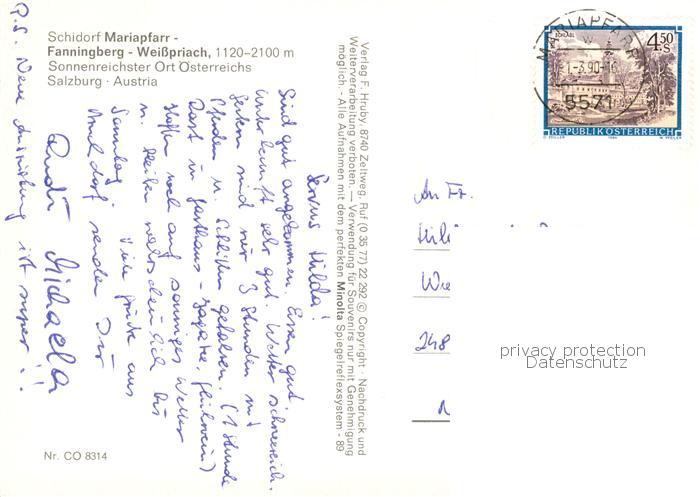 Schidorf Mariapfarr -
Fanningberg - Weißpriach, 1120–2100 m
Sonnenreichster Ort Österreichs
Salzburg · Austria
Servus Hilda!
Sind gut angekommen. Essen gut,
Unterkunft sehr gut. Wetter schneereich.
Gestern sind wir 3 Stunden mit
Pferden u. Schlitten gefahren. (1 Stunde
Rast in Gasthaus - Jagatee, Glühwein)
Hoffen noch auf sonniges Wetter
u. bleiben wahrscheinlich bis
Sonntag. Viele Grüße aus
senden Dir
Rudi Michaela
P.S. Neue ist super!!
Verlag F. Hruby, 8740 Zeltweg, Ruf (0 35 77) 22 292 © Copyright · Nachdruck und
Weiterverarbeitung verboten. — Verwendung für Souvenirs nur mit Genehmigung
möglich. - Alle Aufnahmen mit dem perfekten Minolta Spiegelreflexsystem - 89
Nr. CO 8314
MARIAPFARR
-1-3.90-
5571
4.50 S
REPUBLIK ÖSTERREICH
An Fr.
Hil
Wie
248
privacy protection
Datenschutz